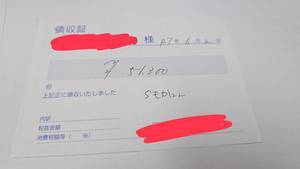 領収証
様
¥ 51,300
但
上記正に領収いたしました
内訳
税抜金額
消費税額等（　%）